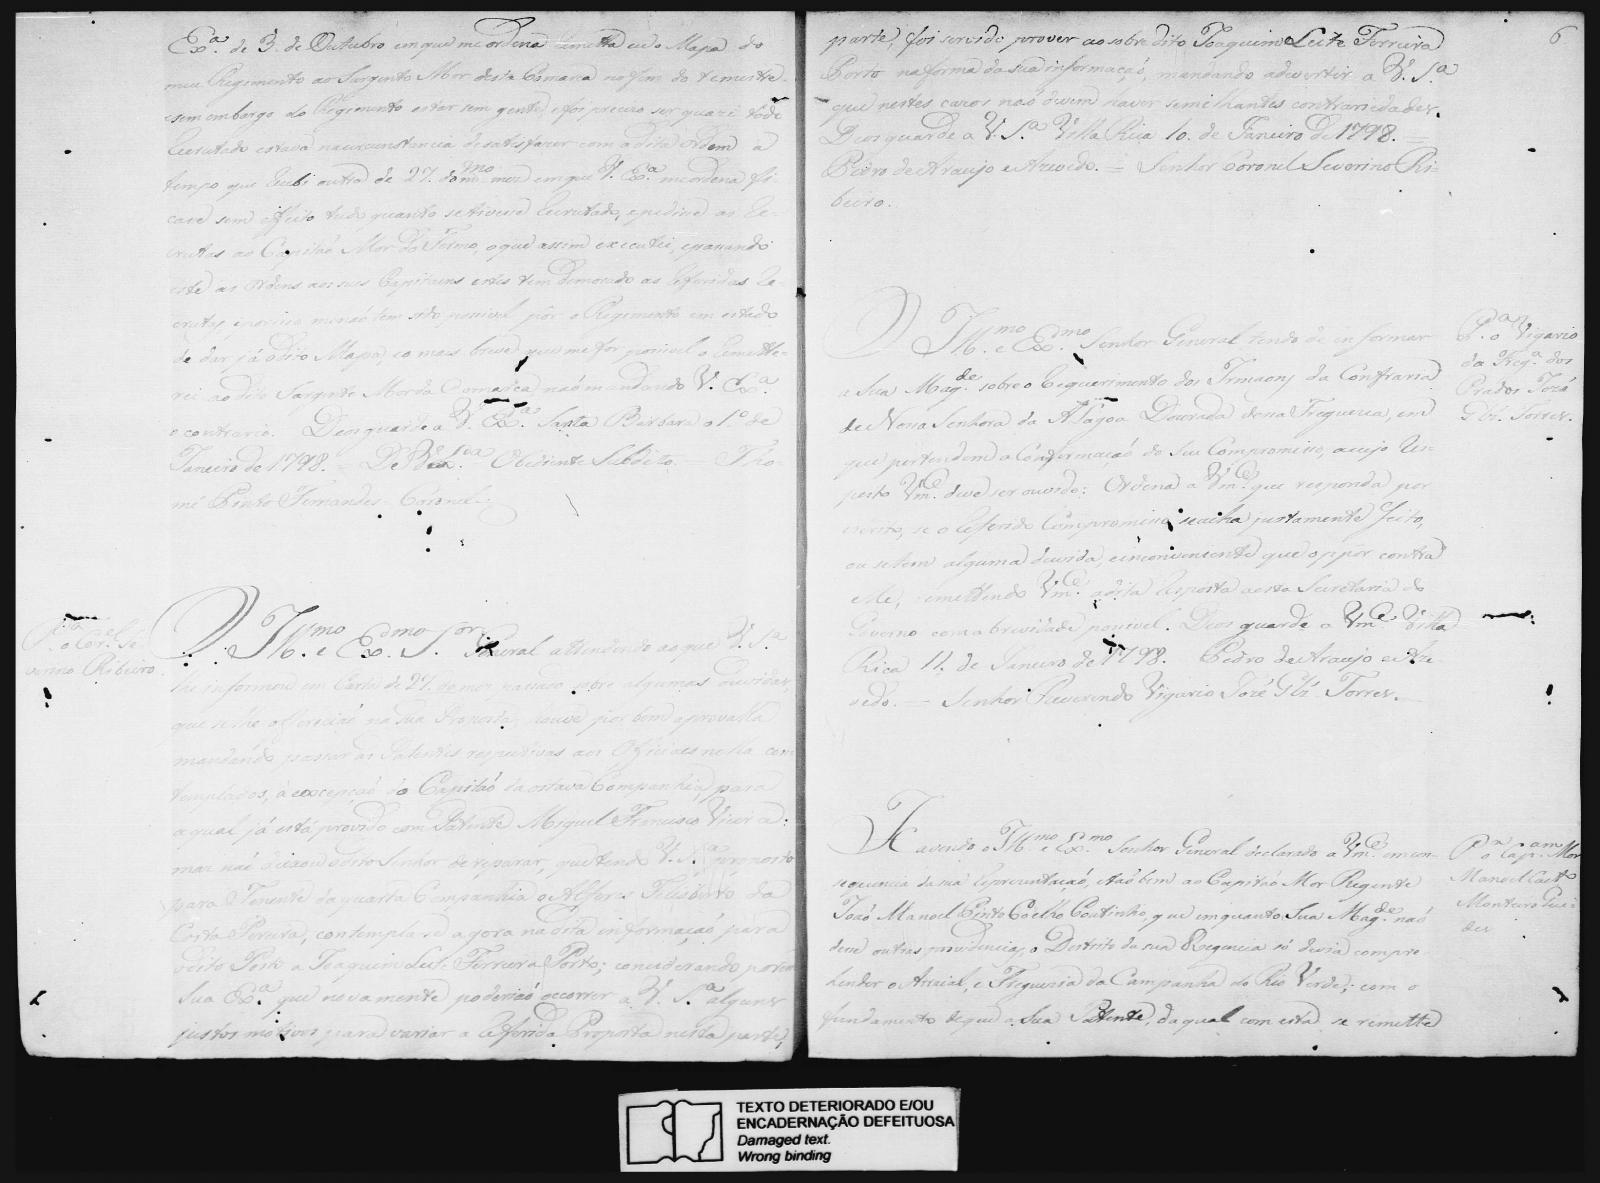 Exª. de 3. de Outubro em que me ordena remetta eu o Mapa do
meu Regimento ao Sargento Mor desta Comarca no fim do semestre
e sem embargo do Regimento estar sem gente, e foi precizo ser quazi todo
Recrutado estava na circunstancia de satisfazer com a dita Ordem a
tempo que recebi outra de 27. do mmo mez em que V. Exª. me ordena fi-
case sem effeito tudo quanto se tivese recrutado, e pedise as Re-
crutas ao Capitaõ Mor do Termo, o que assim executei, e passando
este as Ordens aos seus Capitaens estes tem demorado as referidas Re-
crutas, e por iso me naõ tem sido posivel pôr o Regimento em estado
de dar já o dito Mapa, e o mais breve que me for posivel o remette-
rei ao dito Sargento Mor da Comarca naõ mandando V. Exª.
o contrario. Deos guarde a V. Exª. Santa Barbara o 1º de
Janeiro de 1798. = De V. Exª. Obediente Subdito = Tho-
mé Pinto Fernandes Coronel.
Pª. o Corel. Se-
verino Ribeiro
O Illmo. e Exmo. Sor. General attendendo ao que V. Sª
lhe informou em Carta de 27. do mez passado sobre algumas duvidas,
que se lhe offereciaõ na sua Proposta, houve por bem aprovalla
mandando passar as Patentes respectivas aos Officiaes nella con-
templados, á excepçaõ do Capitaõ da oitava Companhia, para
a qual já está provido com Patente Miguel Francisco Vieira:
mas naõ deixou o dito Senhor de reparar, que tendo V. Sª proposto
para Tenente da quarta Companhia o Alferes Felisberto da
Costa Pereira, contemplase agora na dita informaçaõ para
o dito Posto a Joaquim Leite Ferreira Porto; considerando porém
Sua Exª. que novamente poderiaõ occorrer a V. Sª alguns
justos motivos para variar a referida Proposta nesta parte,
6
parte, foi servido prover ao sobredito Joaquim Leite Ferreira
Porto na forma da sua informaçaõ, mandando advertir a V. Sª
que nestes cazos naõ devem haver semilhantes contrariedades.
Deos guarde a V. Sª Villa Rica 10. de Janeiro de 1798. =
Pedro de Araujo e Azevedo. = Senhor Coronel Severino Ri-
beiro.
Pª. o Vigario
da Fregª. dos
Prados Jozé
Glz. Torres.
O Illmo. e Exmo. Senhor General tendo de informar
a Sua Magde. sobre o requerimento dos Irmaons da Confraria
de Nossa Senhora da Alagoa Dourada dessa Freguezia, em
que pertendem a Confirmaçaõ do seu Compromisso, a cujo res-
peito Vmce. deve ser ouvido: Ordena a Vmce. que responda por
escrito, se o referido Compromisso se acha justamente feito,
ou se tem alguma duvida, e inconveniente que oppôr contra
elle, remettendo Vmce. a dita resposta a esta Secretaria do
Governo com a brevidade posivel. Deos guarde a Vmce. Villa
Rica 11. de Janeiro de 1798. Pedro de Araujo e Aze-
vedo. = Senhor Reverendo Vigario Jozé Glz. Torres.
Pª o Capam. Mor
Manoel Caeto.
Monteiro Gue-
des
Havendo o Illmo. e Exmo. Senhor General declarado a Vmce. em con-
sequencia da sua reprezentaçaõ, e taõbem ao Capitaõ Mor Regente
Joaõ Manoel Pinto Coelho Coutinho, que em quanto Sua Magde. naõ
dese outras providencias, o Destrito da sua Regencia só devia compre-
hender o Arraial, e Freguezia da Campanha do Rio Verde; com o
fundamento de que a sua Patente, da qual com esta se remette
TEXTO DETERIORADO E/OU
ENCADERNAÇÃO DEFEITUOSA
Damaged text.
Wrong binding